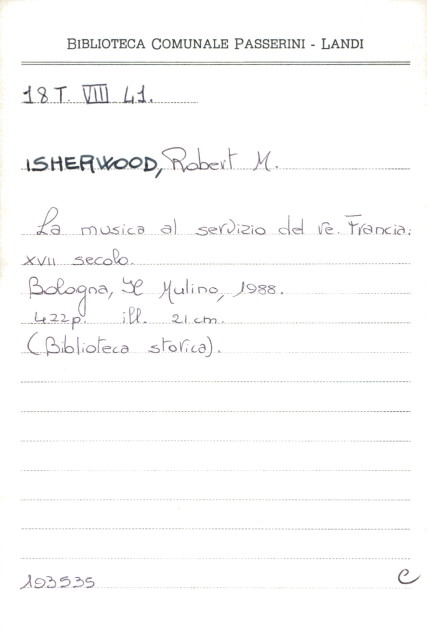 BIBLIOTECA COMUNALE PASSERINI - LANDI
18 T. VIII 41.
ISHERWOOD, Robert M.
La musica al servizio del re. Francia:
XVII secolo.
Bologna, Il Mulino, 1988.
422p. ill. 21 cm.
(Biblioteca storica).
193535 C